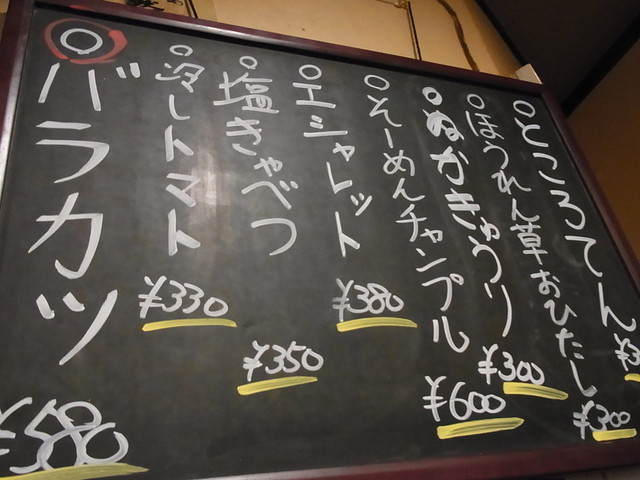 ○ところてん ¥3
○ほうれん草おひたし ¥300
○ぬかきゅうり ¥300
○そーめんチャンプル ¥600
○エシャレット ¥380
○塩きゃべつ ¥350
○冷しトマト ¥330
◎バラカツ ¥580